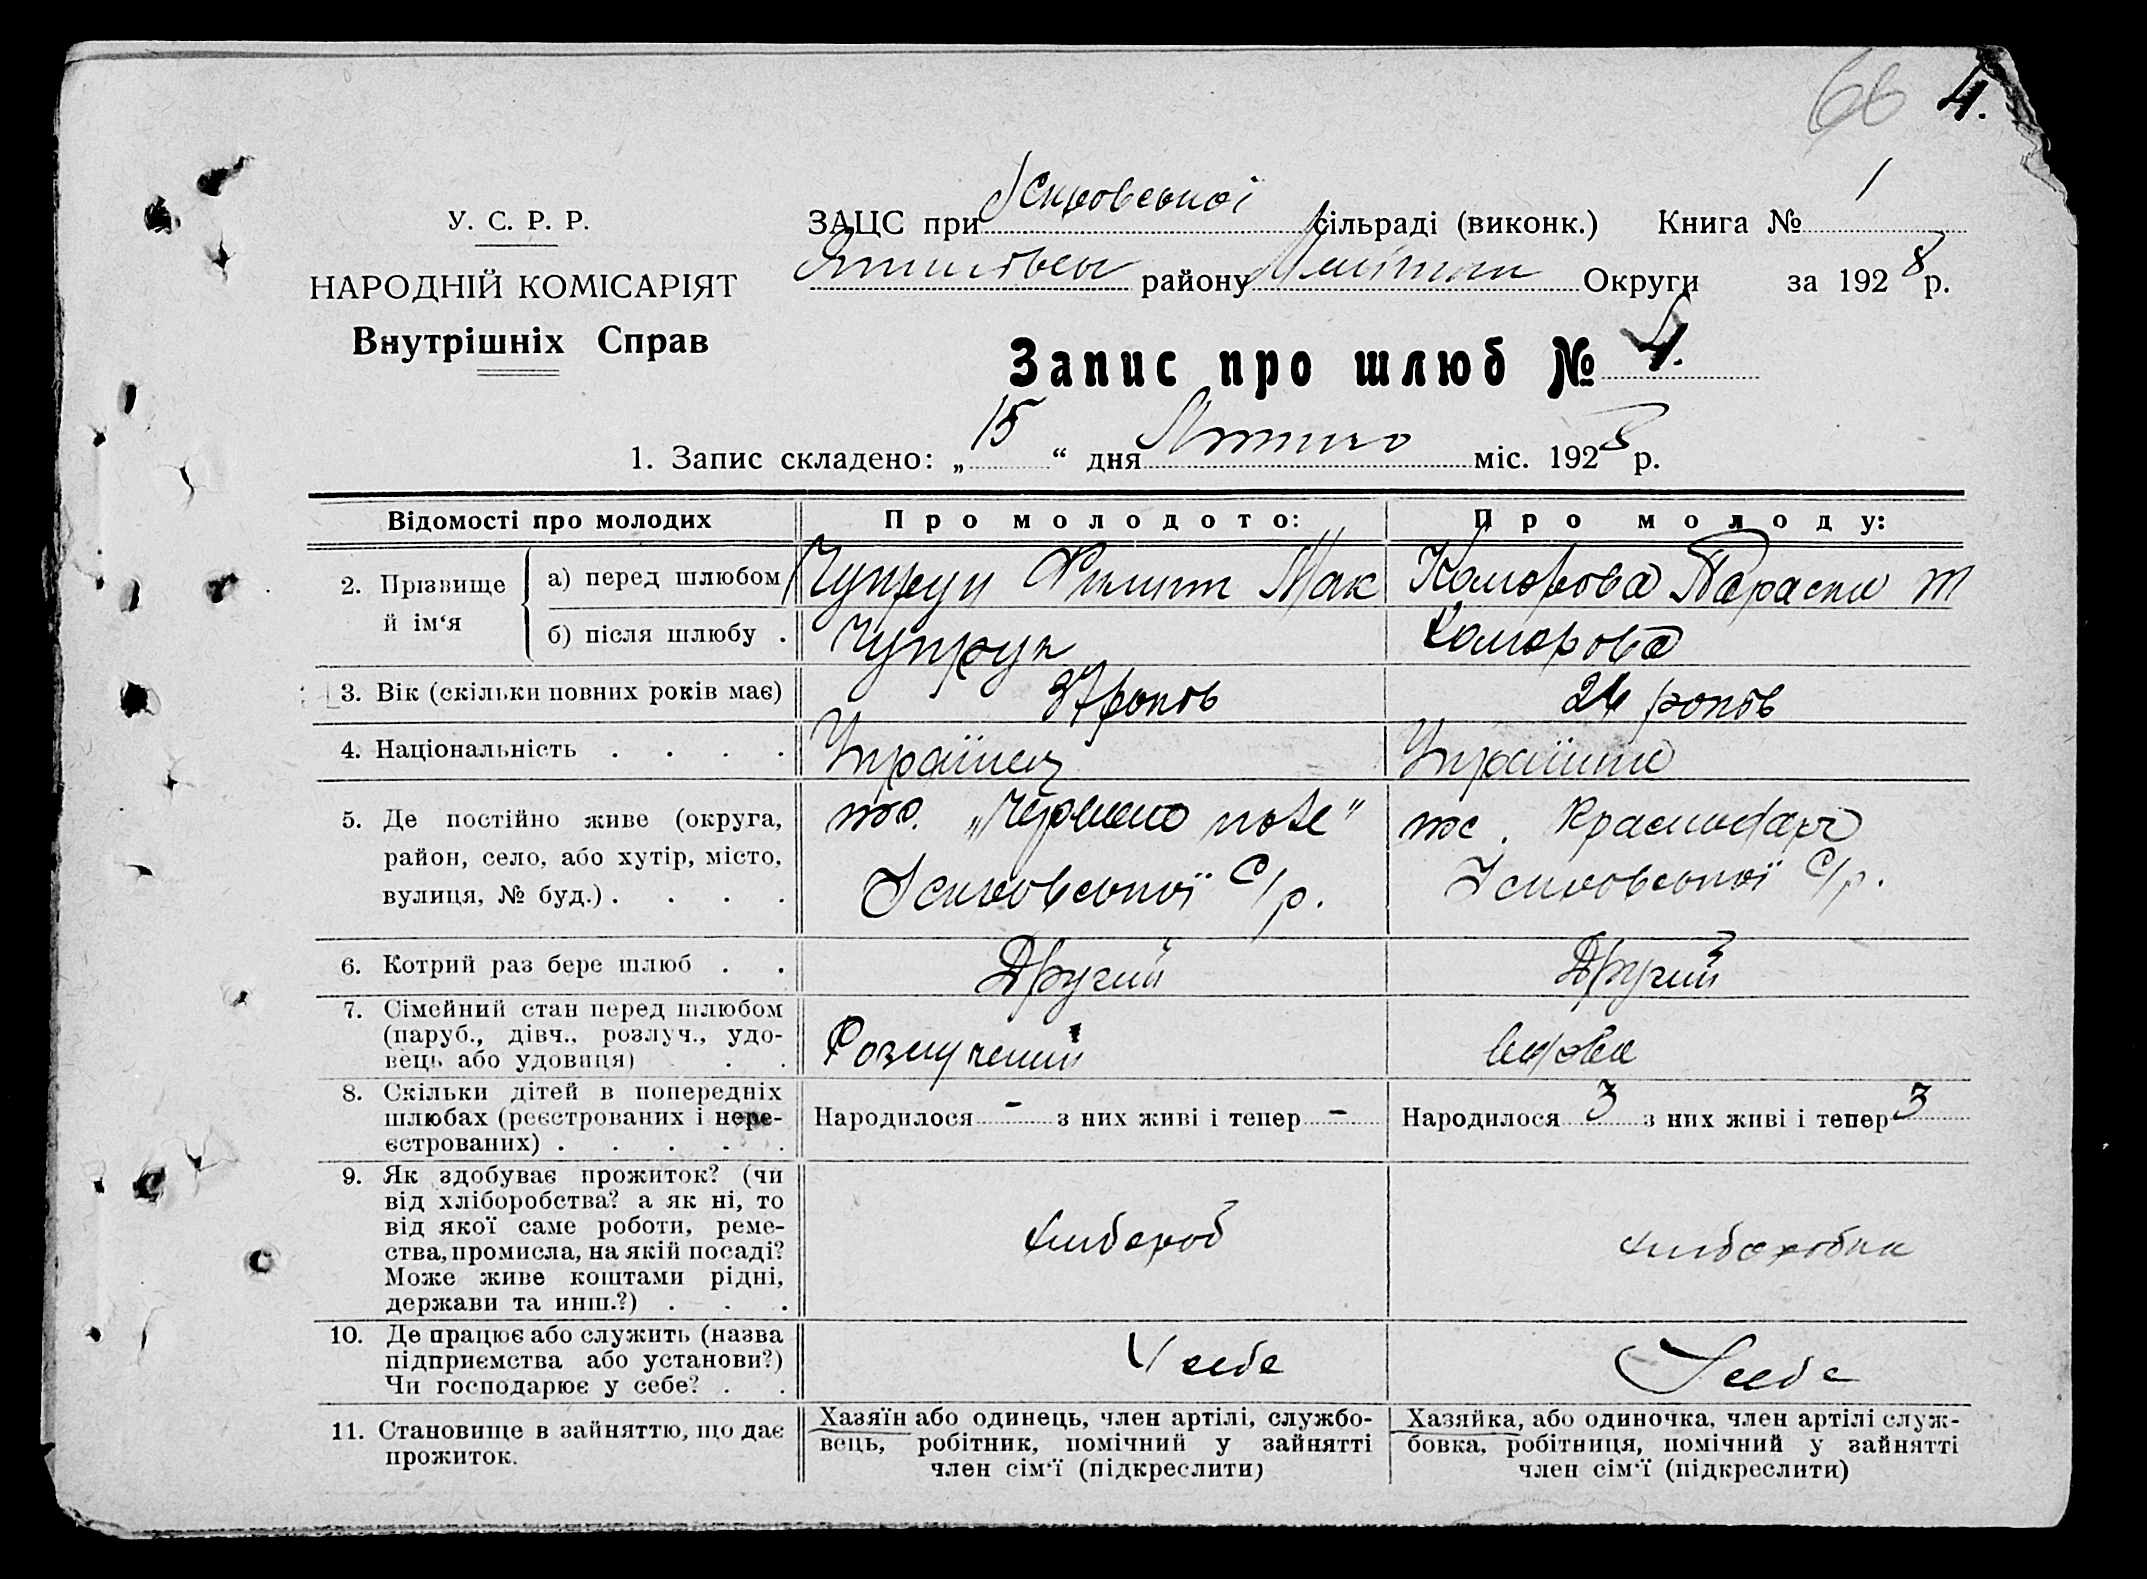 66 4.
У. С. Р. Р.
НАРОДНІЙ КОМІСАРІЯТ
Внутрішніх Справ
ЗАЦС при сільраді (виконк.) Книга № 1
району Округи за 1928 р.
Запис про шлюб № 4.
1. Запис складено: „15“ дня Лютого міс. 1928 р.
Відомості про молодих
Про молодого:
Про молоду:
2. Прізвище й ім‘я
а) перед шлюбом
Чупрун Филип Мак
Коморова Параска Т
б) після шлюбу .
Чупрун
Коморова
3. Вік (скільки повних років має)
37 років
років
4. Національність . . . .
Українец
Українка
5. Де постійно живе (округа,
район, село, або хутір, місто,
вулиця, № буд.) . . . .
„Червоно поле"
с/р.
с/р.
6. Котрий раз бере шлюб . .
Другий
Другий
7. Сімейний стан перед шлюбом
(паруб., дівч., розлуч., удо-
вець або удовиця) . .
Розлучений
вдова
8. Скільки дітей в попередніх
шлюбах (реєстрованих і нере-
єстрованих) . . . . .
Народилося - з них живі і тепер -
Народилося 3 з них живі і тепер 3
9. Як здобуває прожиток? (чи
від хліборобства? а як ні, то
від якої саме роботи, реме-
ства, промисла, на якій посаді?
Може живе коштами рідні,
держави та инш.?) . . .
хлібороб
хліборобка
10. Де працює або служить (назва
підприємства або установи?)
Чи господарює у себе? . .
У себе
У себе
11. Становище в зайняттю, що дає
прожиток.
Хазяїн або одинець, член артілі, службо-
вець, робітник, помічний у зайнятті
член сім‘ї (підкреслити)
Хазяйка, або одиночка, член артілі служ-
бовка, робітниця, помічний у зайнятті
член сім‘ї (підкреслити)